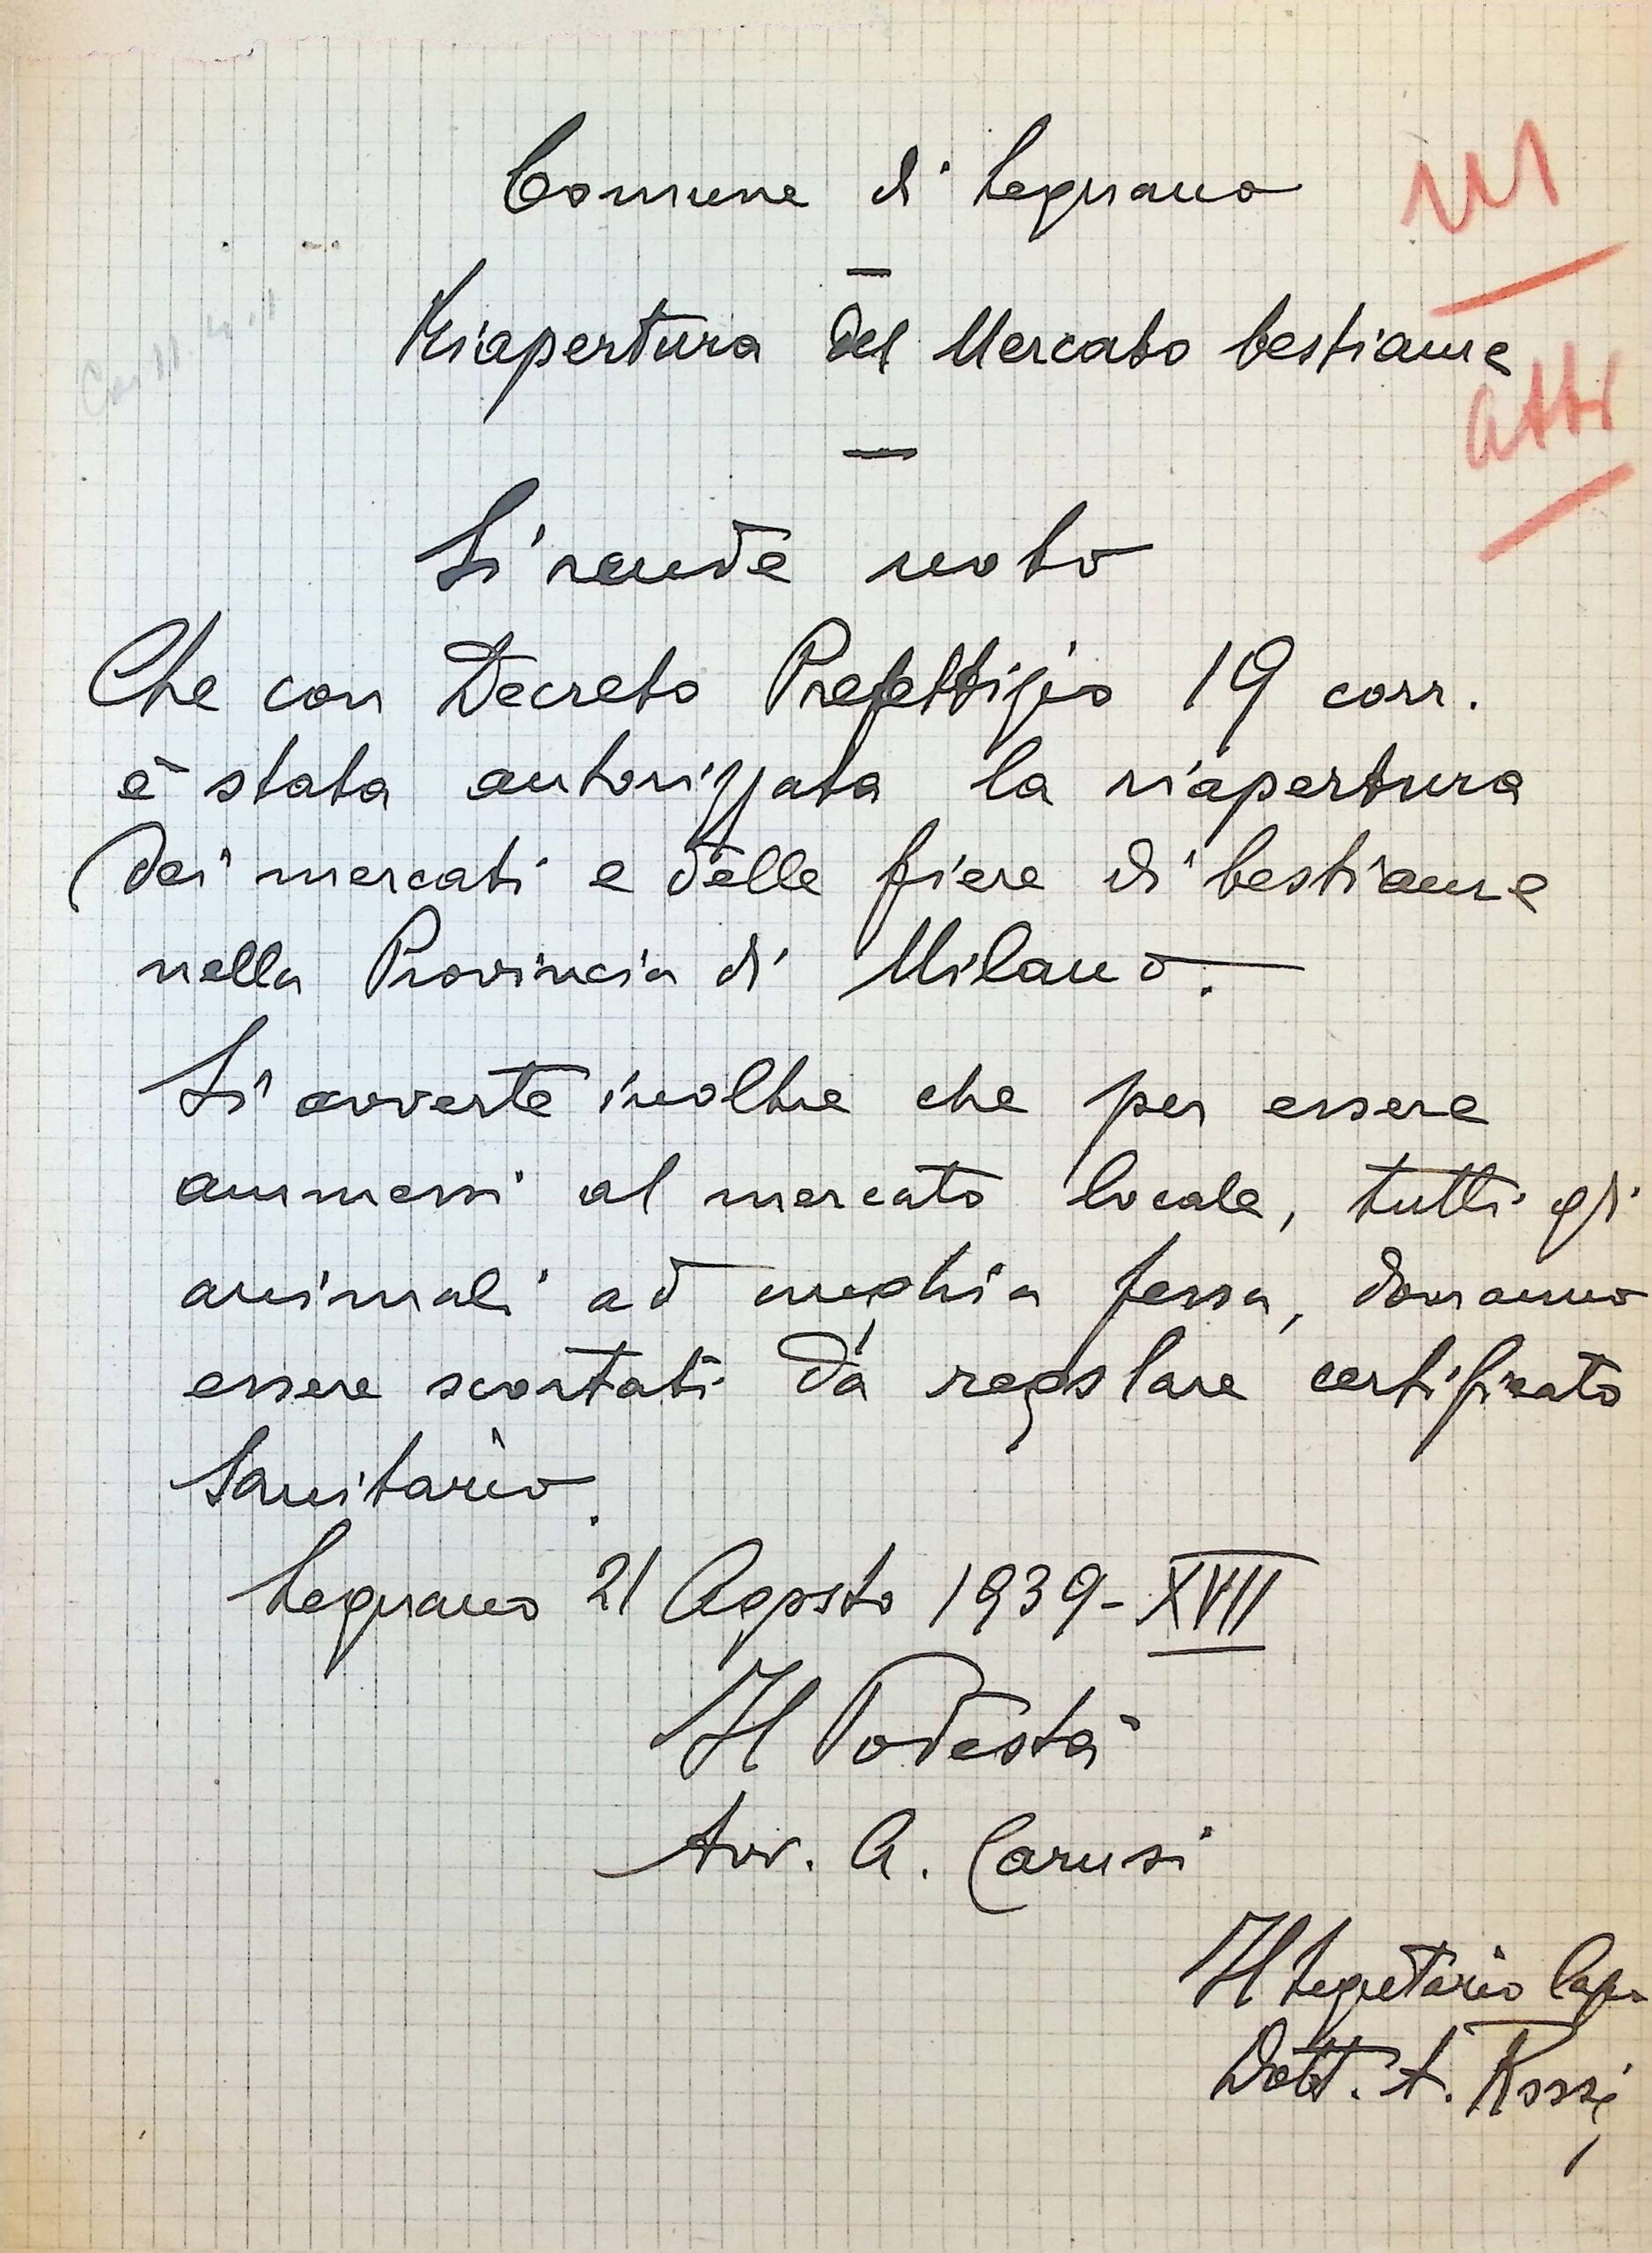 Comune di Legnano
Riapertura del Mercato bestiame
Si rende noto
Che con Decreto Prefettizio 19 corr.
è stata autorizzata la riapertura
dei mercati e delle fiere di bestiame
nella Provincia di Milano.
Si avverte inoltre che per essere
ammessi al mercato locale, tutti gli
animali ad unghia fessa, dovranno
essere scortati da regolare certificato
Sanitario.
Legnano 21 Agosto 1939-XVII
Il Podestà
Avv. A. Carusi
Il Segretario Capo
Dott. A. Rossi
atti